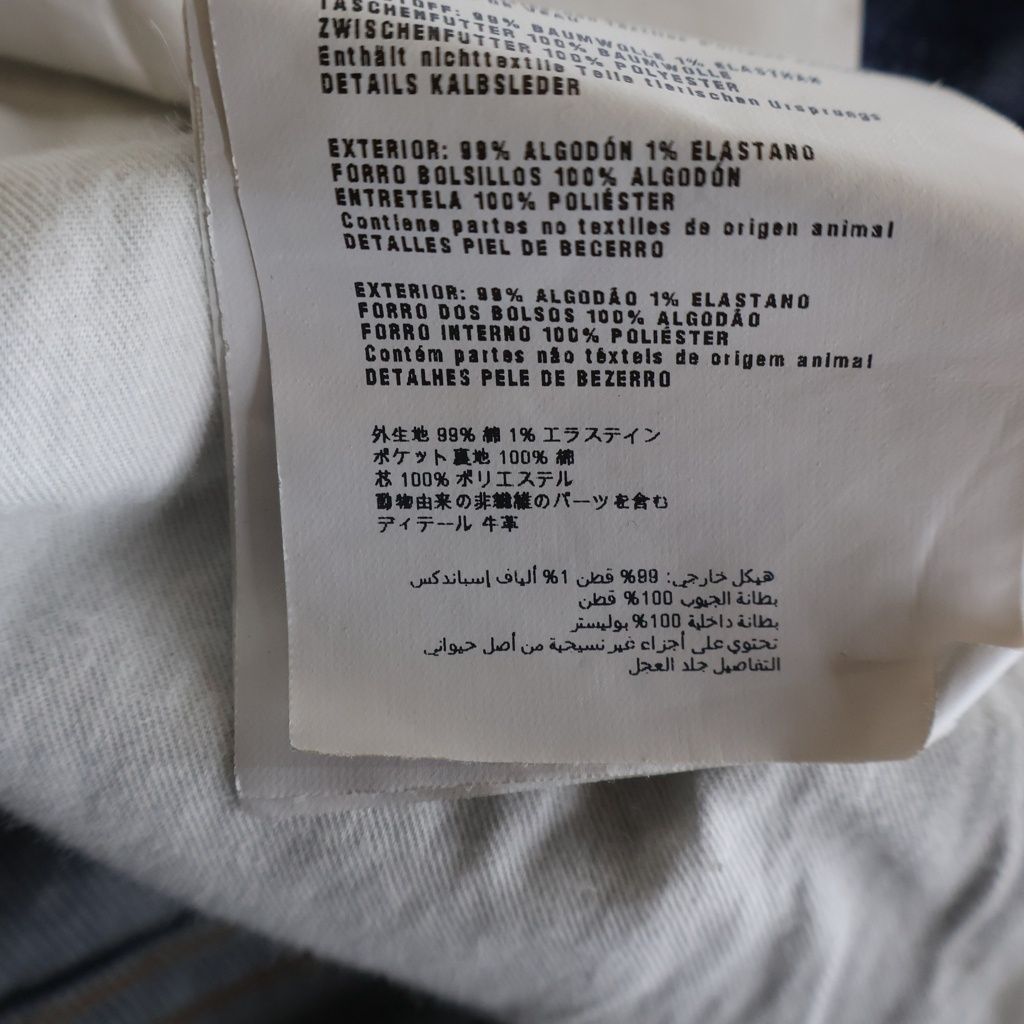 STOFF: 99% BAUMWOLLE 1% ELASTHAN
TASCHENFUTTER 100% BAUMWOLLE
ZWISCHENFUTTER 100% POLYESTER
Enthält nichttextile Teile tierischen Ursprungs
DETAILS KALBSLEDER
EXTERIOR: 99% ALGODÓN 1% ELASTANO
FORRO BOLSILLOS 100% ALGODÓN
ENTRETELA 100% POLIÉSTER
Contiene partes no textiles de origen animal
DETALLES PIEL DE BECERRO
EXTERIOR: 99% ALGODÃO 1% ELASTANO
FORRO DOS BOLSOS 100% ALGODÃO
FORRO INTERNO 100% POLIÉSTER
Contém partes não têxteis de origem animal
DETALHES PELE DE BEZERRO
外生地 99% 綿 1% エラステイン
ポケット裏地 100% 綿
芯 100% ポリエステル
動物由来の非繊維のパーツを含む
ディテール 牛革
هيكل خارجي: 99% قطن 1% ألياف إسباندكس
بطانة الجيوب 100% قطن
بطانة داخلية 100% بوليستر
تحتوي على أجزاء غير نسيجية من أصل حيواني
التفاصيل جلد العجل